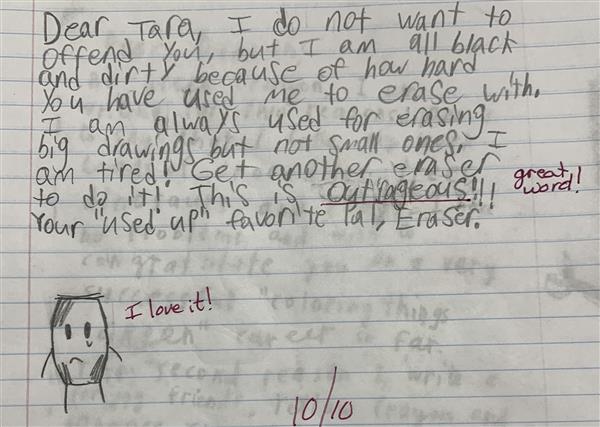 Dear Tara, I do not want to
offend you, but I am all black
and dirty because of how hard
you have used me to erase with.
I am always used for erasing
big drawings but not small ones. I
am tired! Get another eraser
to do it! This is outrageous!!! great word!
Your "used up" favorite Pal, Eraser.
I love it!
10/10